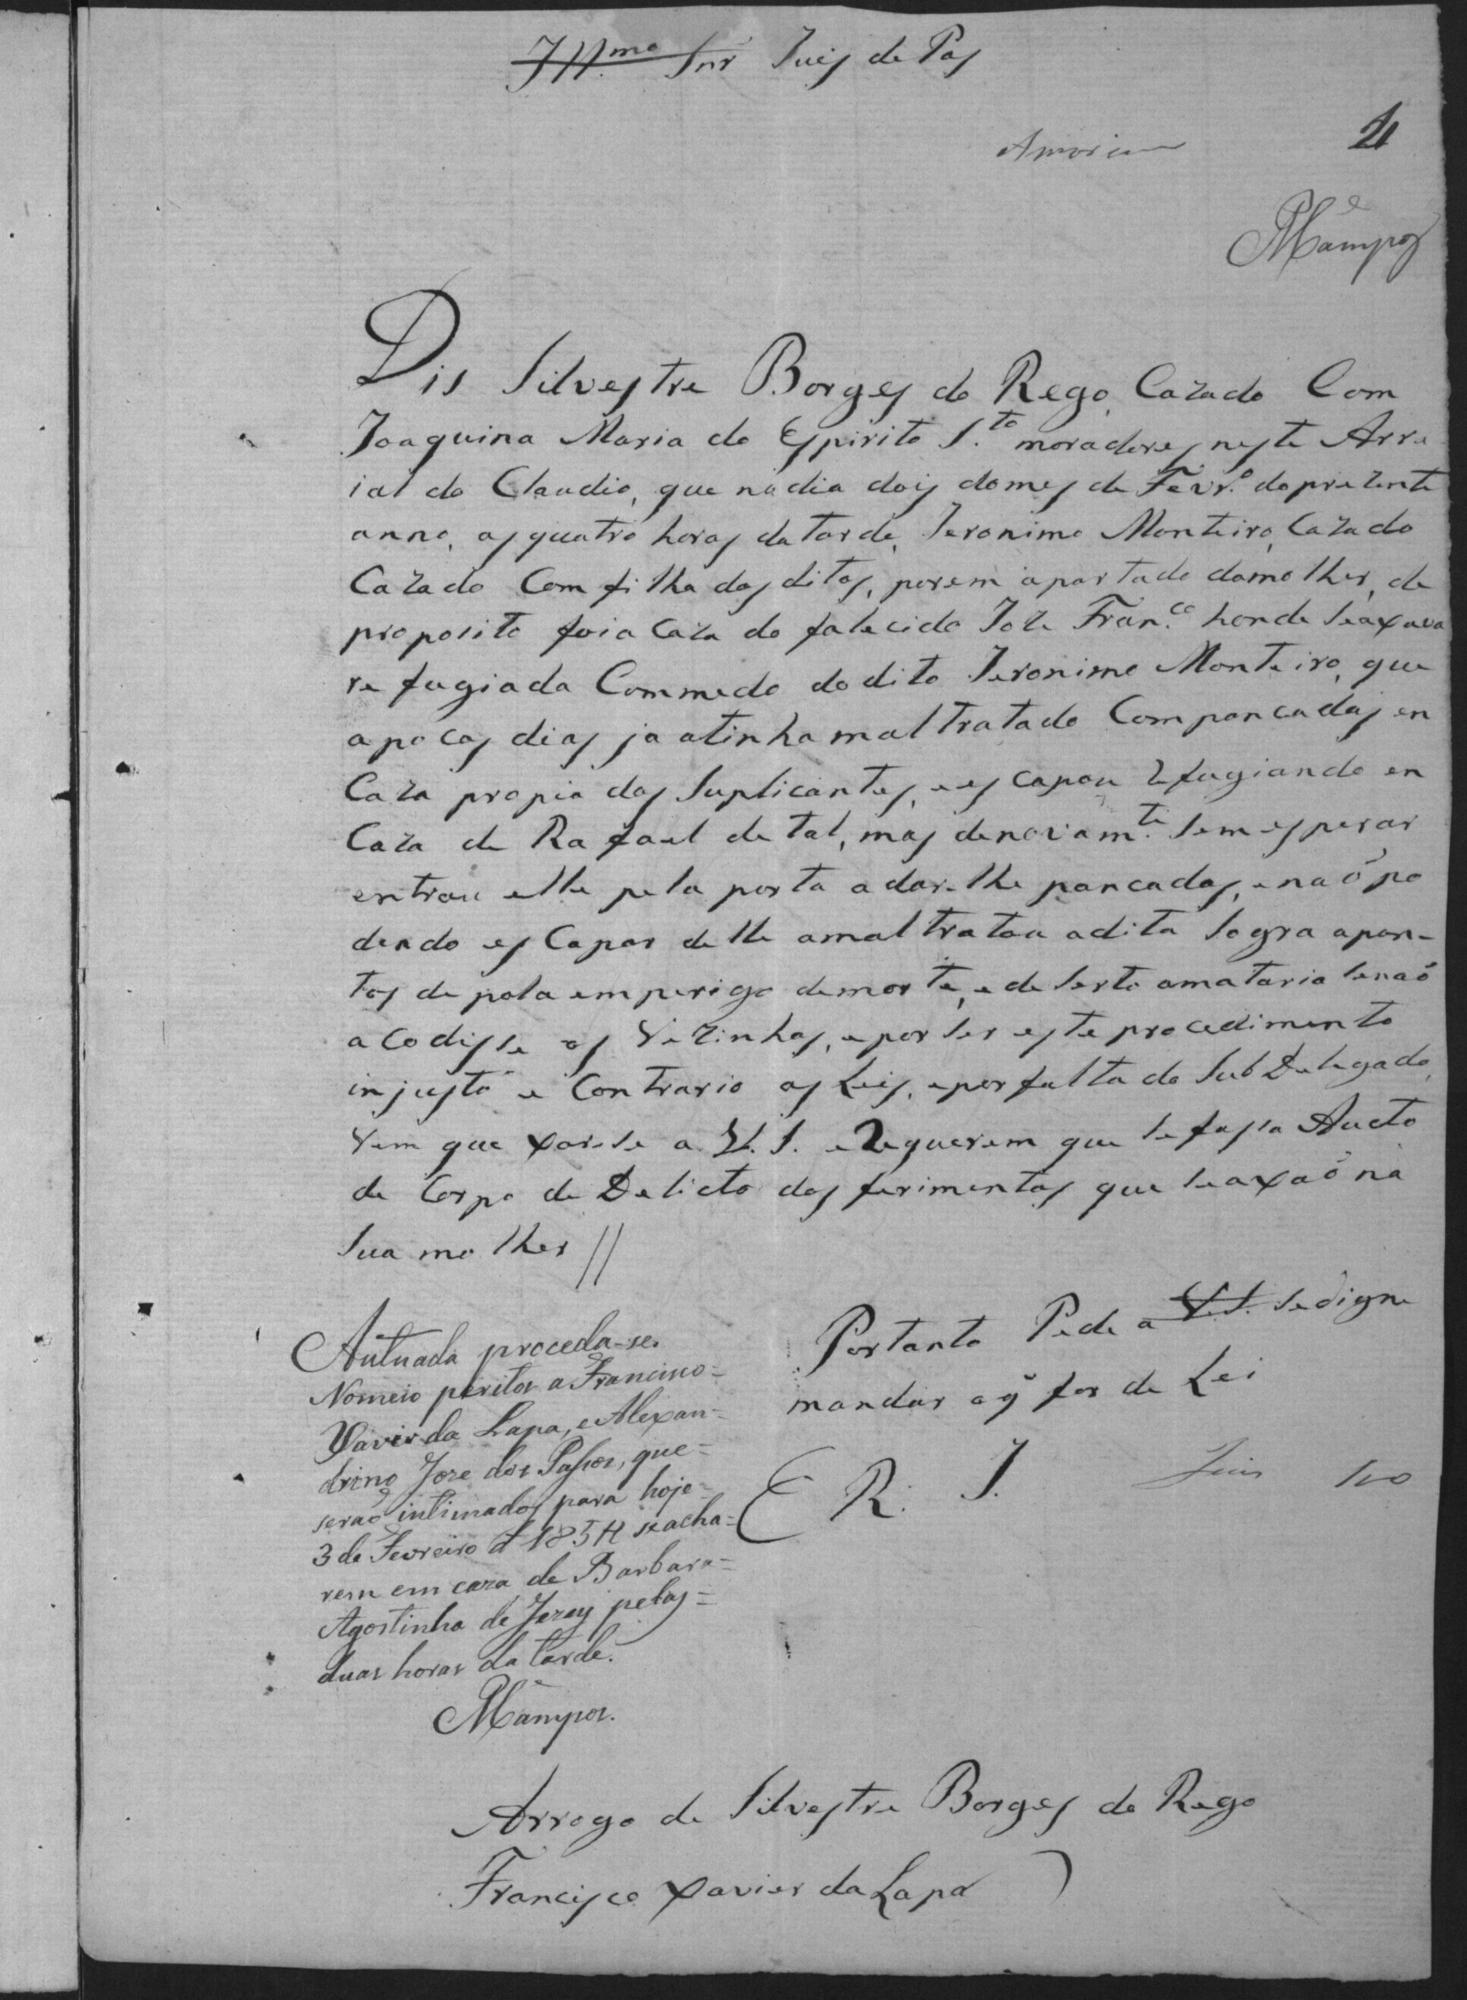 Illmo Snr Juis de Pas
Amorim
4
MCampos
Dis Silvestre Borges do Rego, Cazado Com
Joaquina Maria do Espirito S.to moradores neste Arra
ial do Claudio, que nodia dois domes de Fevr.o doprezente
anno, as quatro horas da tarde, Jeronimo Monteiro, Cazado
Cazado Com filha dos ditos, porem apartado damolher, de
proposito foi a Caza do falecido Joze Fran.co honde seaxava
refugiada Commedo do dito Jeronimo Monteiro, que
apocas dias ja atinha maltratado Compancadas en
Caza propia dos Suplicantes, e escapou refugiando en
Caza de Rafael de tal, mas denovam.te sem esperar
entrou elle pela porta adar-lhe pancadas, enaõ po
dendo es Capar delle amaltratou adita Sogra apon-
tos de pola emperigo demorte, e de serto amataria senaõ
acodisse os Vezinhos, epor ser este procedimento
injusto e Contrario as Leis, epor falta do SubDelegado,
Vem que xarse a V. S. e Requerem que se fassa Aucto
de Corpo de Delicto dos ferimentos que seaxaõ na
Sua molher //
Portanto Pede a V. S. sedigne
mandar oq̃ for de Lei
E R. J.
Autuada proceda-se.
Nomeio peritos a Francisco=
Xavier da Lapa, e Alexan=
drino Joze dos Passos, que=
seraõ intimados para hoje=
3 de Fevreiro d 1854 seacha=
rem em caza de Barbara=
Agostinha de Jezus pelas=
duas horas da tarde.
MCampos.
Arrogo de Silvestre Borges do Rego
Francisco Xavier da Lapa